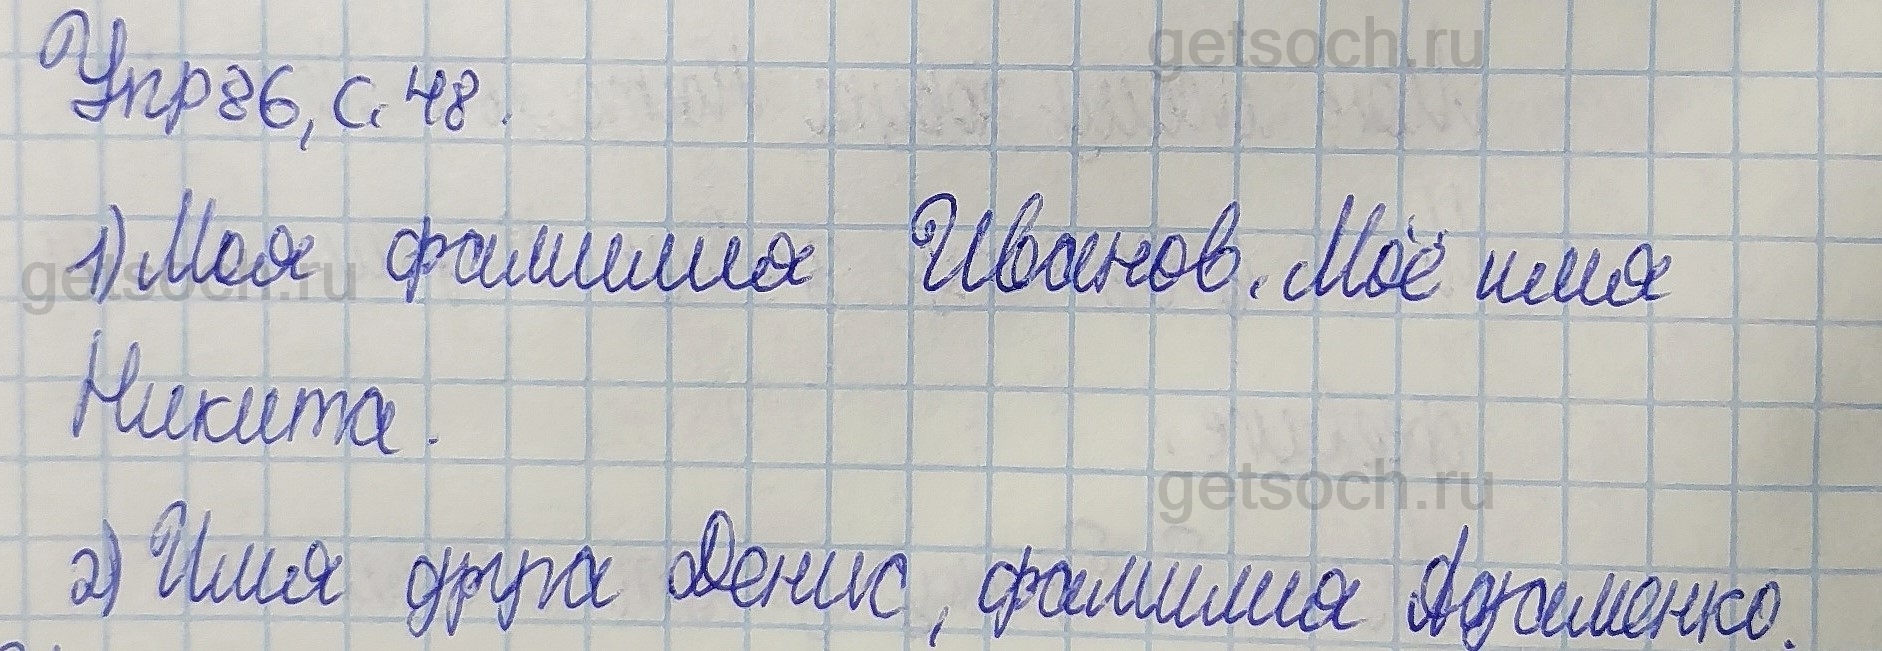 getsoch.ru
Упр 86, с. 48.
1) Моя фамилия Иванов. Моё имя
getsoch.ru
Никита.
getsoch.ru
2) Имя друга Денис, фамилия Адаменко.